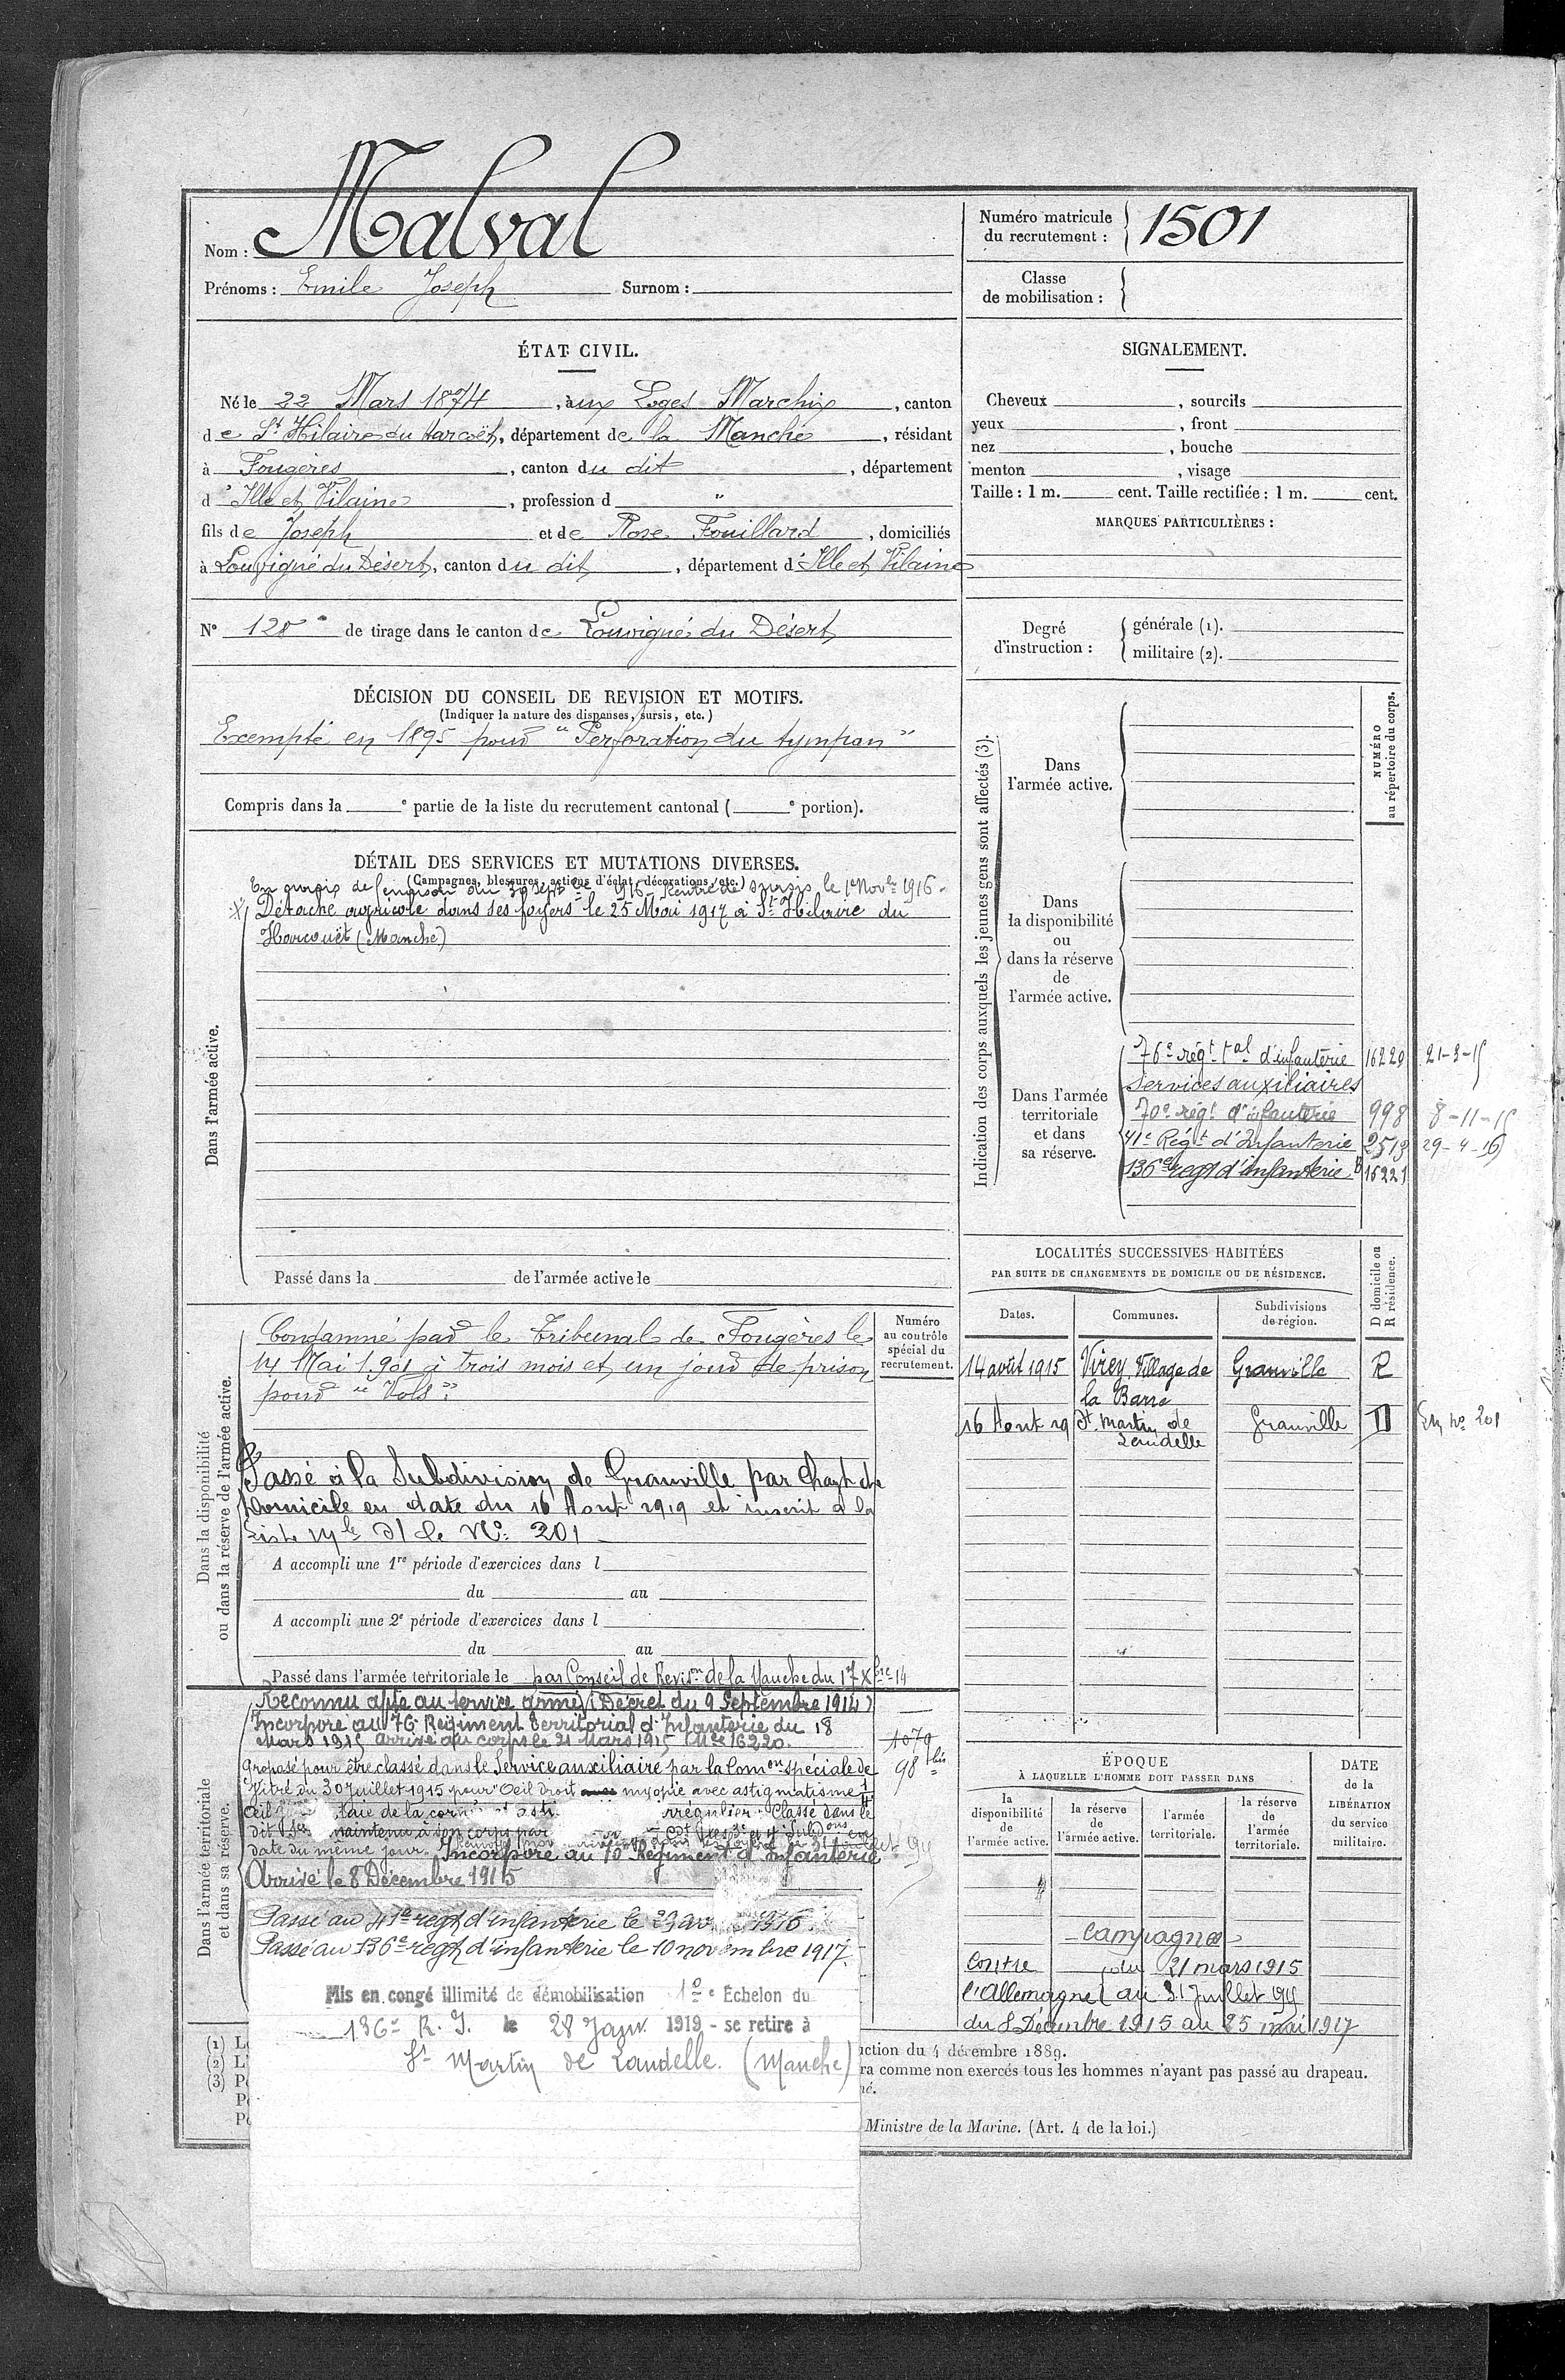 Nom : Malval
Prénoms : Emile Joseph Surnom :
Numéro matricule du recrutement : 1501
Classe de mobilisation :
ÉTAT CIVIL.
Né le 22 Mars 1874, aux Loges Marchix, canton
de St Hilaire du Harcoët, département de la Manche, résidant
à Fougères, canton du dit, département
d'Ille et Vilaine, profession d "
fils de Joseph et de Rose Fouillard, domiciliés
à Louvigné du Désert, canton du dit, département d'Ille et Vilaine
N° 128 de tirage dans le canton de Louvigné du Désert
DÉCISION DU CONSEIL DE REVISION ET MOTIFS.
(Indiquer la nature des dispenses, sursis, etc.)
Exempté en 1895 pour "Perforation du tympan"
Compris dans la e partie de la liste du recrutement cantonal ( e portion).
SIGNALEMENT.
Cheveux , sourcils
yeux , front
nez , bouche
menton , visage
Taille : 1 m. cent. Taille rectifiée : 1 m. cent.
MARQUES PARTICULIÈRES :
Degré d'instruction :
générale (1).
militaire (2).
DÉTAIL DES SERVICES ET MUTATIONS DIVERSES.
(Campagnes, blessures, actions d'éclat, décorations, etc.)
En sursis de 30 Sept 1916 Rentré de sursis le 1er Novbre 1916 -
Détaché agricole dans ses foyers le 25 Mai 1917 à St Hilaire du
Harcouët (Manche)
Dans l'armée active.
Passé dans la de l'armée active le
Indication des corps auxquels les jeunes gens sont affectés (3).
NUMÉRO au répertoire du corps.
Dans
l'armée active.
Dans
la disponibilité
ou
dans la réserve
de
l'armée active.
Dans l'armée
territoriale
et dans
sa réserve.
76e régt tal d'infanterie 16220 21-3-15
Services auxiliaires
70e régt d'infanterie 998 8-11-15
41e Régt d'Infanterie 2513 29-4-16
136e regt d'infanterie 16221
Dans la disponibilité
ou dans la réserve de l'armée active.
Numéro
au contrôle
spécial du
recrutement.
Condamné par le Tribunal de Fougères le
14 Mai 1901 à trois mois et un jour de prison
pour "Vols".
Passé à la Subdivision de Granville par chagt de
Domicile en date du 16 Aout 1919 et inscrit à la
Liste Mle le No: 201
A accompli une 1re période d'exercices dans l
du au
A accompli une 2e période d'exercices dans l
du au
Passé dans l'armée territoriale le par Conseil de Revison de la Manche du 17 Xbre 14
LOCALITÉS SUCCESSIVES HABITÉES
PAR SUITE DE CHANGEMENTS DE DOMICILE OU DE RÉSIDENCE.
D domicile ou R résidence.
Dates. Communes. Subdivisions de région.
14 août 1915 Virey, Village de la Barre Granville R
16 Aout 19 St Martin de Landelle Granville D
No 201
Dans l'armée territoriale
et dans sa réserve.
Reconnu apte au service armé (Décret du 9 Septembre 1914)
Incorporé au 76 Régiment Territorial d'Infanterie du 18
Mars 1915 arrivé au corps le 21 Mars 1915 Mle 16220.
1079
98 bis
Proposé pour être classé dans le Service auxiliaire par la Comon spéciale de
Vitré du 30 Juillet 1915 pour "Oeil droit myopie avec astigmatisme
Oeil taie de la corn irrégulier. Classé dans le
dit maintenu à son corps par
date du même jour. Incorporé au 70 Régiment d'Infanterie
Arrivé le 8 Décembre 1915
Passé au 41e regt d'infanterie le 29 av 1916.
Passé au 136e regt d'infanterie le 10 novembre 1917.
Mis en congé illimité de démobilisation 1o e Échelon du
136e R. I. le 28 Janv. 1919 - se retire à
St Martin de Landelle. (Manche)
ÉPOQUE
À LAQUELLE L'HOMME DOIT PASSER DANS
la disponibilité de l'armée active.
la réserve de l'armée active.
l'armée territoriale.
la réserve de l'armée territoriale.
DATE
de la
LIBÉRATION
du service
militaire.
Campagnes
Contre du 21 mars 1915
l'Allemagne au 31 Juillet 1915
du 8 Décembre 1915 au 25 mai 1917
(1) L
(2) L'
(3) P
uction du 4 décembre 1889.
ra comme non exercés tous les hommes n'ayant pas passé au drapeau.
né.
Ministre de la Marine. (Art. 4 de la loi.)